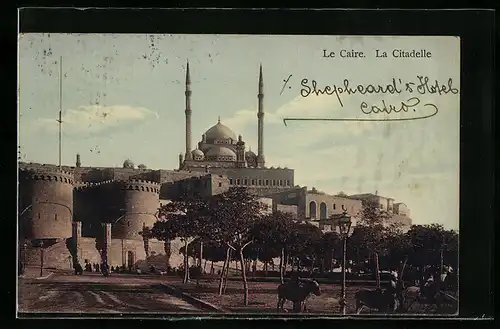 Le Caire. La Citadelle
% Shepheard's Hotel
Cairo.